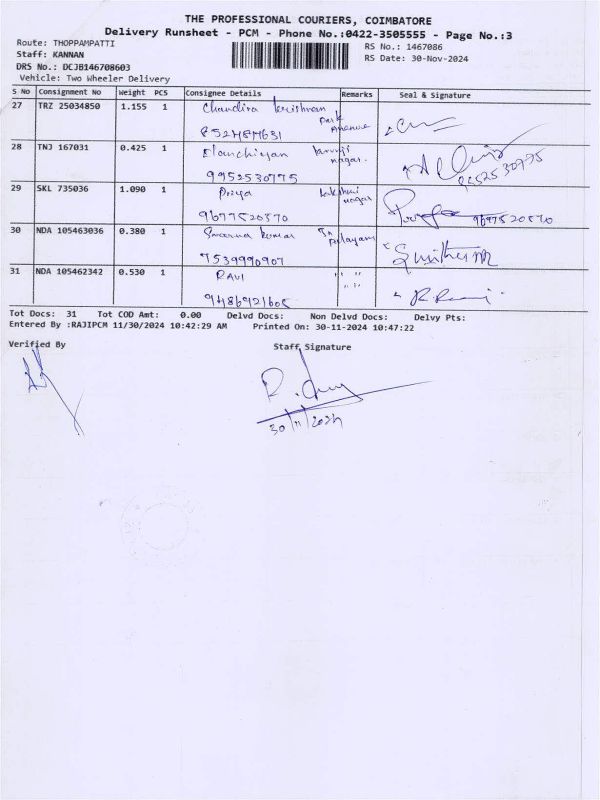 THE PROFESSIONAL COURIERS, COIMBATORE
Delivery Runsheet - PCM - Phone No.:0422-3505555 - Page No.:3
Route: THOPPAMPATTI
Staff: KANNAN
DRS No.: DCJB146708603
Vehicle: Two Wheeler Delivery
RS No.: 1467086
RS Date: 30-Nov-2024
S No Consignment No Weight PCS Consignee Details Remarks Seal & Signature
27 TRZ 25034850 1.155 1 Chandira krishnan Park Avenue
28 TNJ 167031 0.425 1 nagar.
9952530775 9952530775
29 SKL 735036 1.090 1 Priya Lakshmi nagar
9677520570 9677520570
30 NDA 105463036 0.380 1 kumar palayam
7539990907
31 NDA 105462342 0.530 1 RAVI " "
" "
9486921605
Tot Docs: 31 Tot COD Amt: 0.00 Delvd Docs: Non Delvd Docs: Delvy Pts:
Entered By :RAJIPCM 11/30/2024 10:42:29 AM Printed On: 30-11-2024 10:47:22
Verified By Staff Signature
30/11/2024